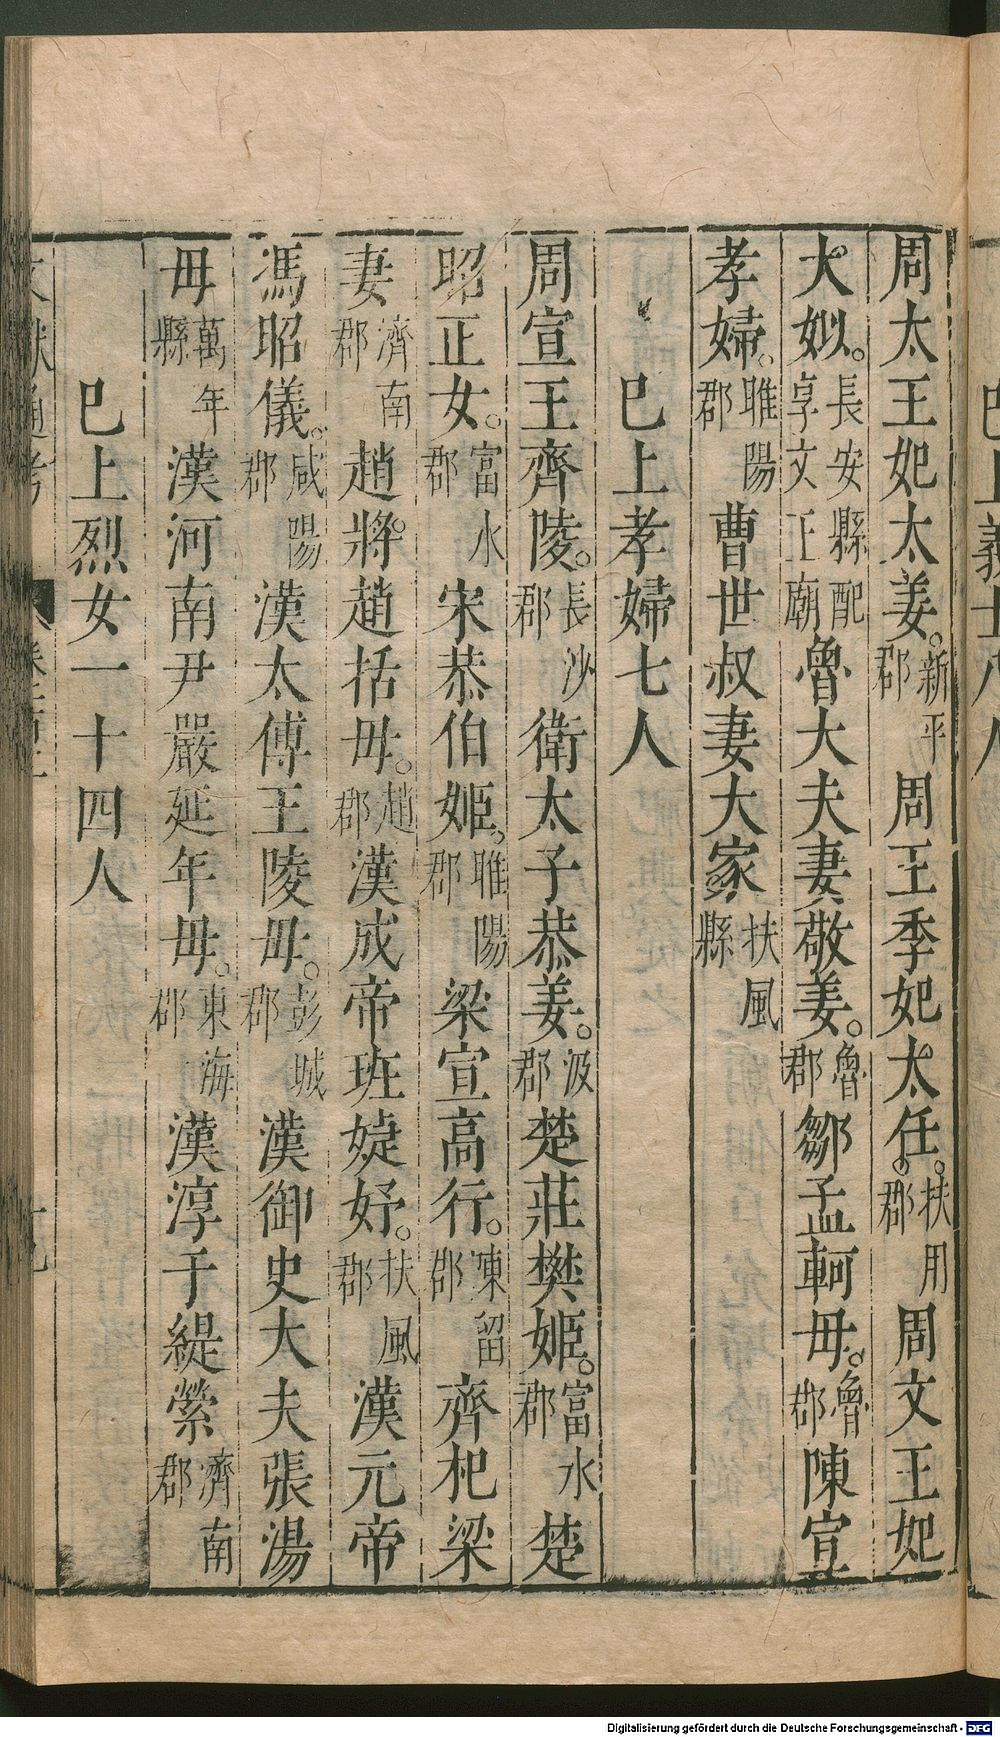 周太王妃太姜。新平郡 周王季妃太任。扶用郡 周文王妃
大姒。長安縣配享文王廟 魯大夫妻敬姜。魯郡 鄒孟軻母。魯郡 陳宣
孝婦。睢陽郡 曹世叔妻大家 扶風縣
巳上孝婦七人
周宣王齊陵。長沙郡 衛太子恭姜。汲郡 楚莊樊姬。富水郡 楚
昭正女。富水郡 宋恭伯姬。睢陽郡 梁宣高行。陳留郡 齊杞梁
妻 濟南郡 趙將。趙括母。趙郡 漢成帝班婕妤。扶風郡 漢元帝
馮昭儀。咸陽郡 漢太傅王陵母。彭城郡 漢御史大夫張湯
母 萬年縣 漢河南尹嚴延年母。東海郡 漢淳于緹縈 濟南郡
巳上烈女一十四人
Digitalisierung gefördert durch die Deutsche Forschungsgemeinschaft - DFG